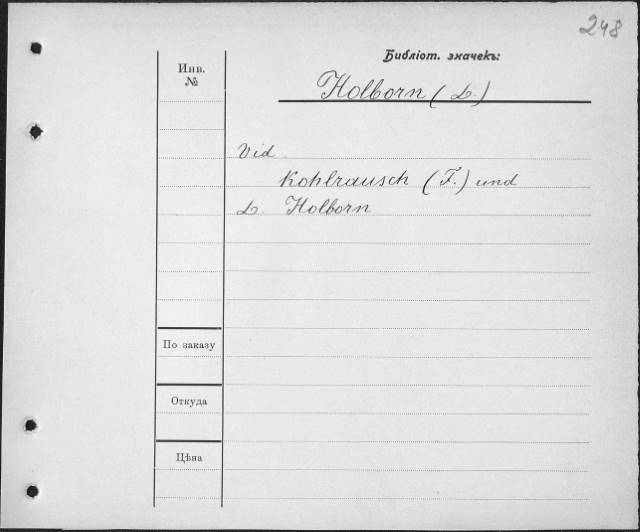 248
Библіот. значекъ:
Инв.
№
Holborn (L.)
Vid.
Kohlrausch (F.) und
L. Holborn
По заказу
Откуда
Цѣна